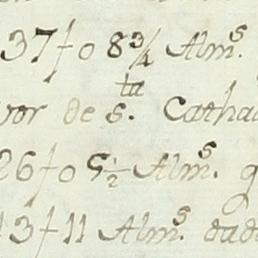 37∫o 8¾ Almˢ.
vor de S.ᵗᵃ Catha
26∫o 5½ Almˢ. q
13∫11 Almˢ. dad